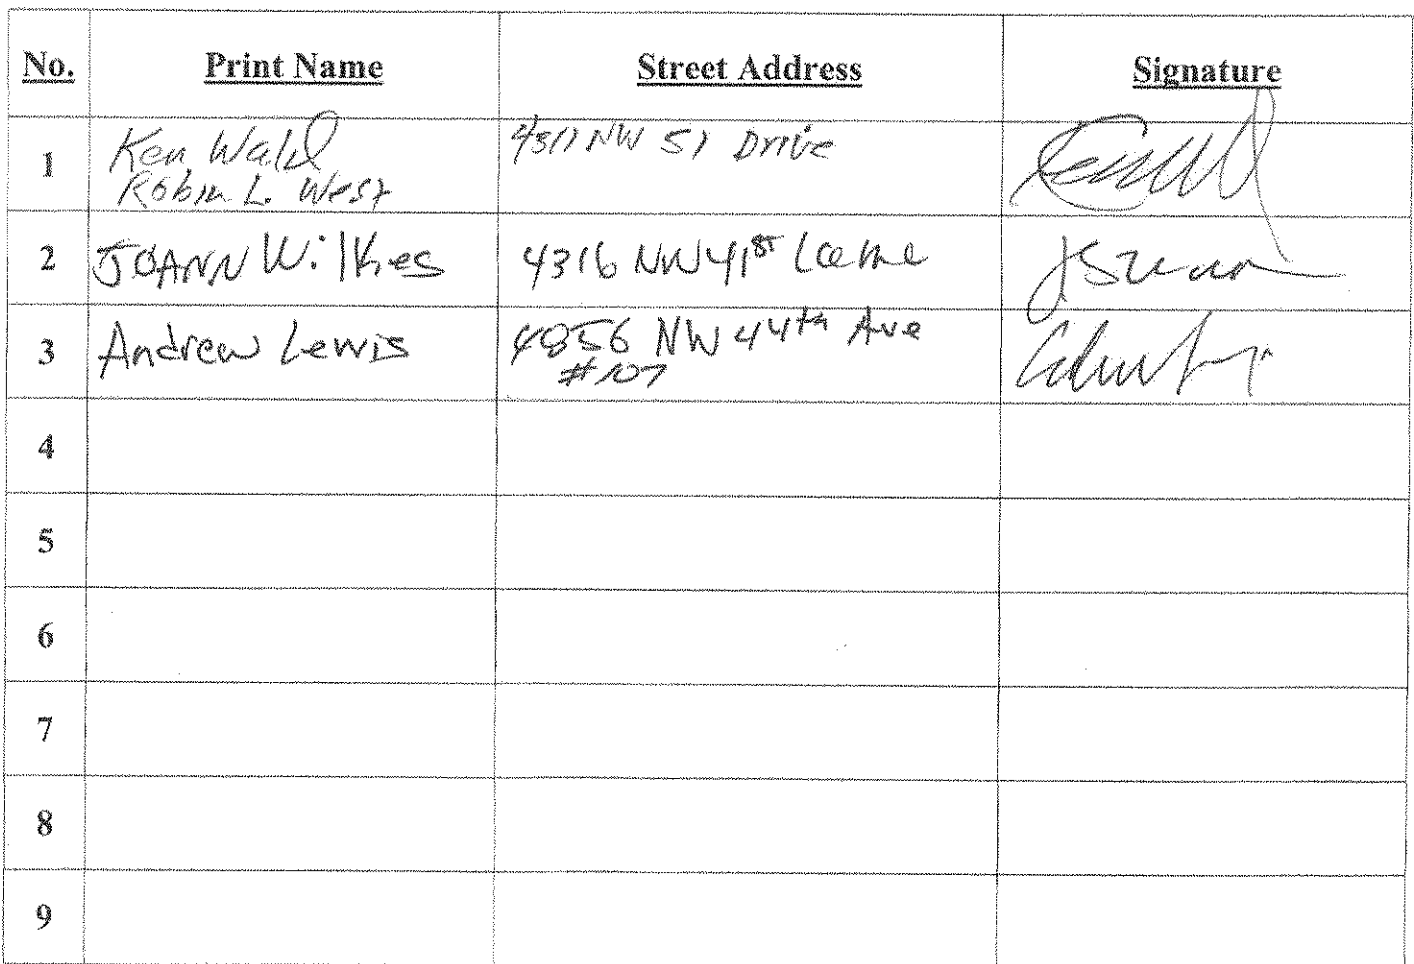 No. Print Name Street Address Signature
1 Ken Wald 4311 NW 51 Drive
Robin L. West
2 JOANN Wilkes 4316 NW 41st Lane
3 Andrew Lewis 4856 NW 44th Ave
#107
4
5
6
7
8
9